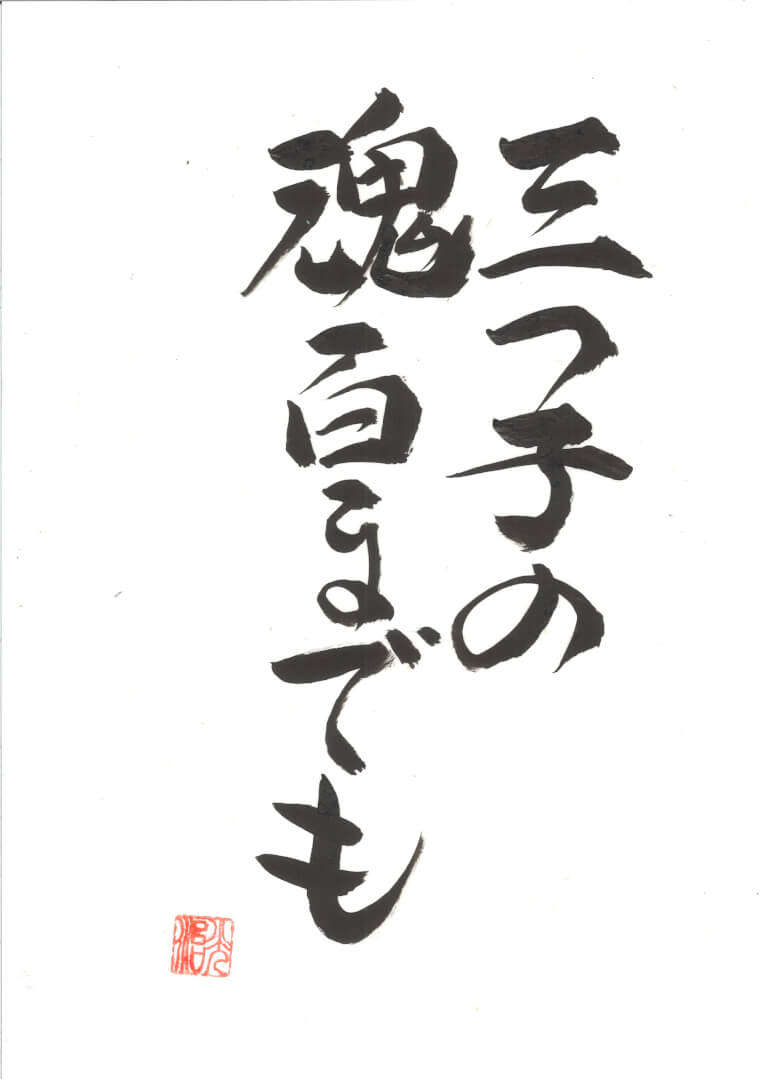 三つ子の
魂百までも